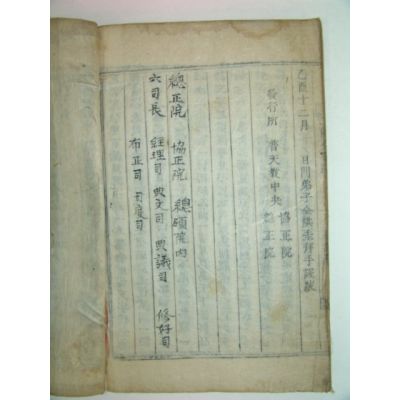 乙酉十二月 日門弟子金 拜手謹跋
發行所 普天敎中央 協正院
總正院
總正院 協正院 總領院內
六司長 經理司 典文司 典議司 修好司
布正司 司度司